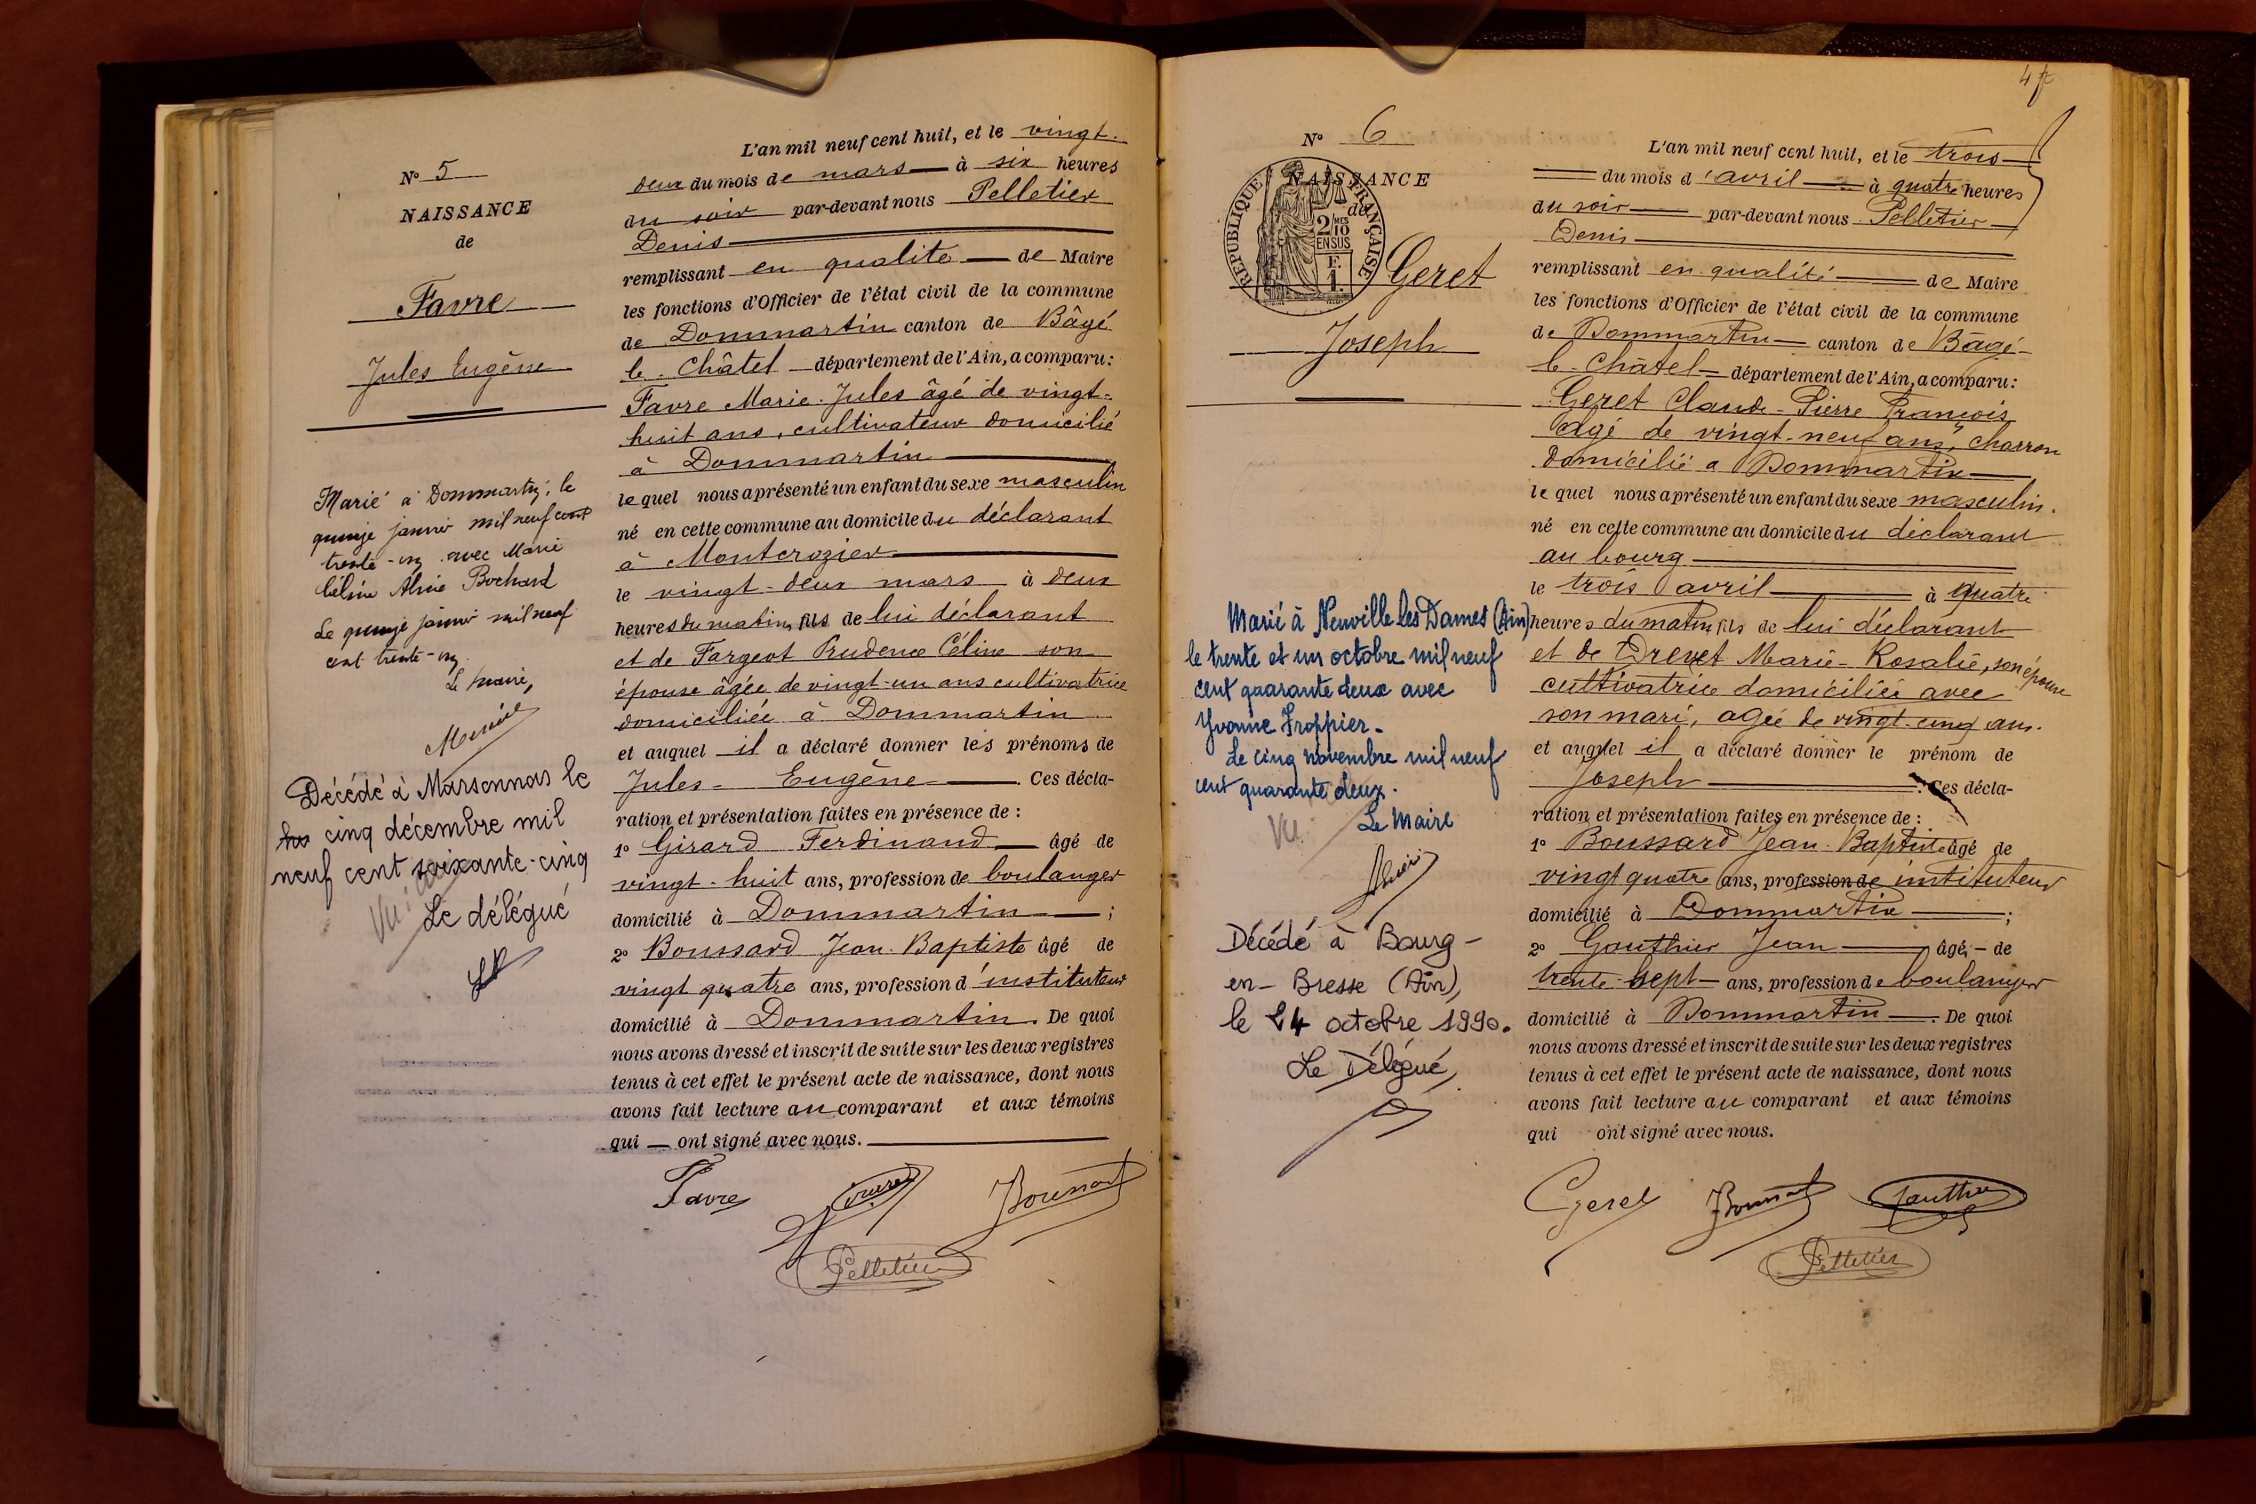 N° 5
NAISSANCE
de
Favre
Jules Eugène
Marié à Dommartin, le
quinze janvier mil neuf cent
trente-un avec Marie
Céline Bochard
Le quinze janvier mil neuf
cent trente-un
Le Maire,
Décédé à Marsonnas le
cinq décembre mil
neuf cent soixante-cinq
Vu
Le délégué
L'an mil neuf cent huit, et le vingt-
deux du mois de mars à six heures
du soir par-devant nous Pelletier
Denis
remplissant en qualité de Maire
les fonctions d'Officier de l'état civil de la commune
de Dommartin canton de Bâgé
le Châtel département de l'Ain, a comparu:
Favre Marie-Jules âgé de vingt-
huit ans, cultivateur domicilié
à Dommartin
lequel nous a présenté un enfant du sexe masculin
né en cette commune au domicile du déclarant
à Montcrozier
le vingt-deux mars à deux
heures du matin, fils de lui déclarant
et de Fargeot Prudence Céline son
épouse âgée de vingt-un ans cultivatrice
domiciliée à Dommartin
et auquel il a déclaré donner les prénoms de
Jules-Eugène. Ces décla-
ration et présentation faites en présence de :
1° Girard Ferdinand âgé de
vingt-huit ans, profession de boulanger
domicilié à Dommartin ;
2° Boussard Jean-Baptiste âgé de
vingt quatre ans, profession d'instituteur
domicilié à Dommartin. De quoi
nous avons dressé et inscrit de suite sur les deux registres
tenus à cet effet le présent acte de naissance, dont nous
avons fait lecture au comparant et aux témoins
qui — ont signé avec nous.
Favre Boussard
Pelletier
N° 6
NAISSANCE
de
RÉPUBLIQUE FRANÇAISE
2/10 MES
EN SUS
F.
1.
Geret
Joseph
Marié à Neuville les Dames (Ain)
le trente et un octobre mil neuf
cent quarante deux avec
Yvonne Froppier-
Le cinq novembre mil neuf
cent quarante deux.
Vu
Le Maire
Décédé à Bourg-
en-Bresse (Ain),
le 24 octobre 1990.
Le Délégué,
L'an mil neuf cent huit, et le trois
du mois d'avril à quatre heures
du soir par-devant nous Pelletier
Denis
remplissant en qualité de Maire
les fonctions d'Officier de l'état civil de la commune
de Dommartin canton de Bâgé-
le-Châtel département de l'Ain, a comparu:
Geret Claude-Pierre François
âgé de vingt-neuf ans, charron
domicilié a Dommartin
lequel nous a présenté un enfant du sexe masculin.
né en cette commune au domicile du déclarant
au bourg
le trois avril à quatre
heures du matin fils de lui déclarant
et de Drevet Marie-Rosalie, son épouse
cultivatrice domiciliée avec
son mari, agée de vingt-cinq ans.
et auquel il a déclaré donner le prénom de
Joseph. Ces décla-
ration et présentation faites en présence de :
1° Boussard Jean-Baptiste âgé de
vingt quatre ans, profession de instituteur
domicilié à Dommartin ;
2° Gauthier Jean âgé de
trente-sept ans, profession de boulanger
domicilié à Dommartin. De quoi
nous avons dressé et inscrit de suite sur les deux registres
tenus à cet effet le présent acte de naissance, dont nous
avons fait lecture au comparant et aux témoins
qui ont signé avec nous.
Geret Boussard Gauthier
Pelletier